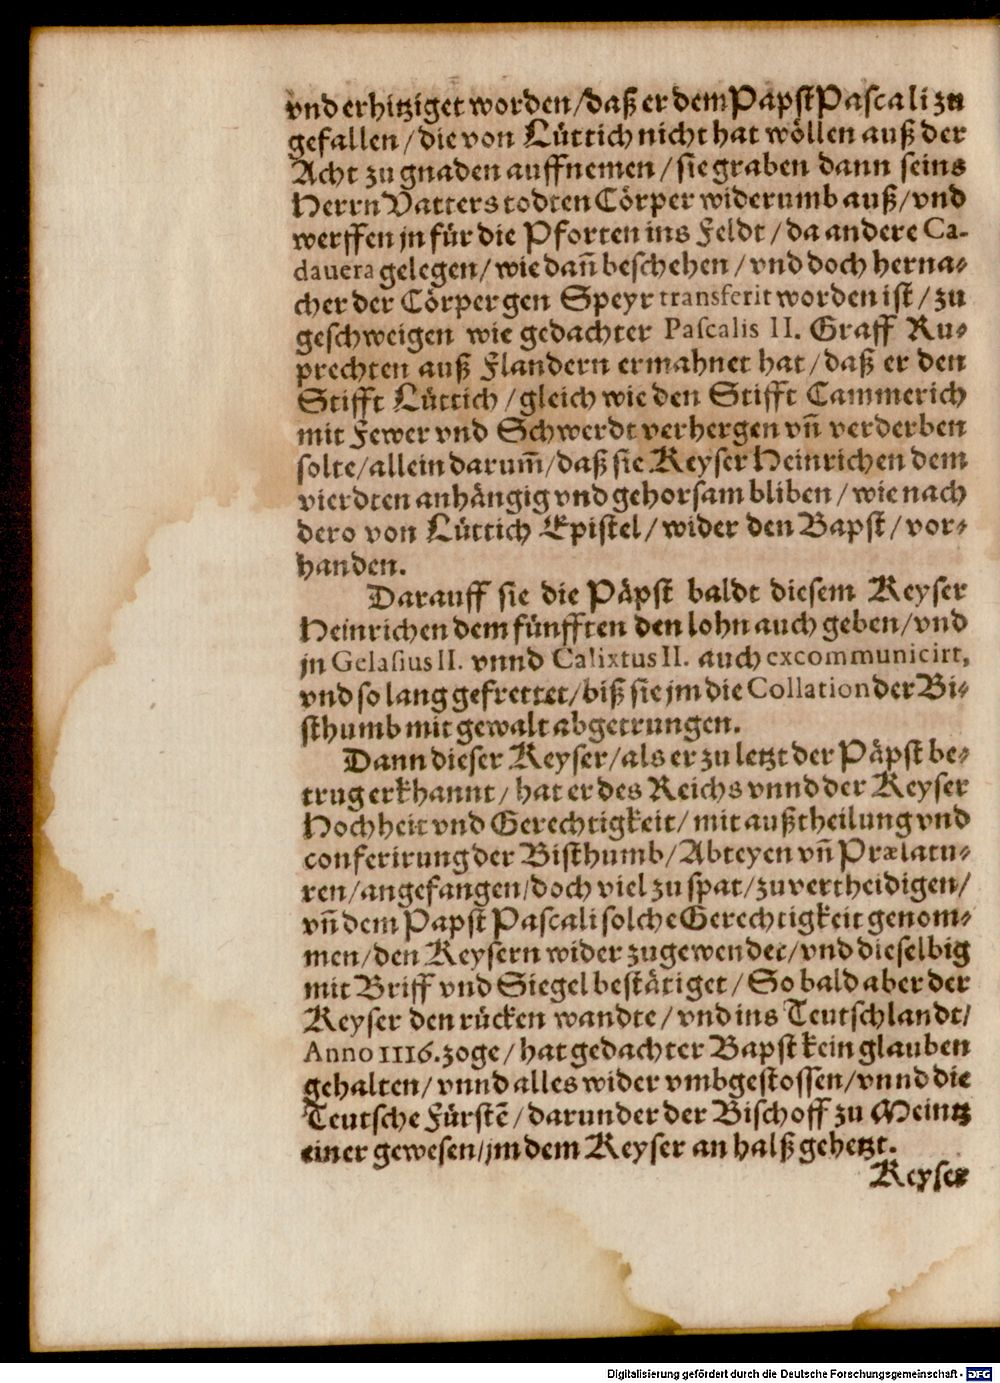 vnd erhitziget worden/daß er dem Papst Pascali zu
gefallen/die von Lüttich nicht hat wöllen auß der
Acht zu gnaden auffnemen/sie graben dann seins
Herrn Vatters todten Cörper widerumb auß/vnd
werffen jn für die Pforten ins Feldt/da andere Ca-
dauera gelegen/wie dañ beschehen/vnd doch herna-
cher der Cörper gen Speyr transferit worden ist/zu
geschweigen wie gedachter Pascalis II. Graff Ru-
prechten auß Flandern ermahnet hat/daß er den
Stifft Lüttich/gleich wie den Stifft Cammerich
mit Fewer vnd Schwerdt verhergen vñ verderben
solte/allein darum̃/daß sie Keyser Heinrichen dem
vierdten anhängig vnd gehorsam bliben/wie nach
dero von Lüttich Epistel/wider den Bapst/vor-
handen.
Darauff sie die Päpst baldt diesem Keyser
Heinrichen dem fünfften den lohn auch geben/vnd
jn Gelasius II. vnnd Calixtus II. auch excommunicirt,
vnd so lang gefrettet/biß sie jm die Collation der Bi-
sthumb mit gewalt abgetrungen.
Dann dieser Keyser/als er zu letzt der Päpst be-
trug erkhannt/hat er des Reichs vnnd der Keyser
Hochheit vnd Gerechtigkeit/mit außtheilung vnd
conferirung der Bisthumb/Abteyen vñ Prælatu-
ren/angefangen/doch viel zu spat/zuvertheidigen/
vñ dem Papst Pascali solche Gerechtigkeit genom-
men/den Keysern wider zugewendet/vnd dieselbig
mit Briff vnd Siegel bestätiget/So bald aber der
Keyser den rücken wandte/vnd ins Teutschlandt/
Anno 1116. zoge/hat gedachter Bapst kein glauben
gehalten/vnnd alles wider vmbgestossen/vnnd die
Teutsche Fürstẽ/darunder der Bischoff zu Meintz
einer gewesen/jm dem Keyser an halß gehetzt.
Keyser
Digitalisierung gefördert durch die Deutsche Forschungsgemeinschaft - DFG